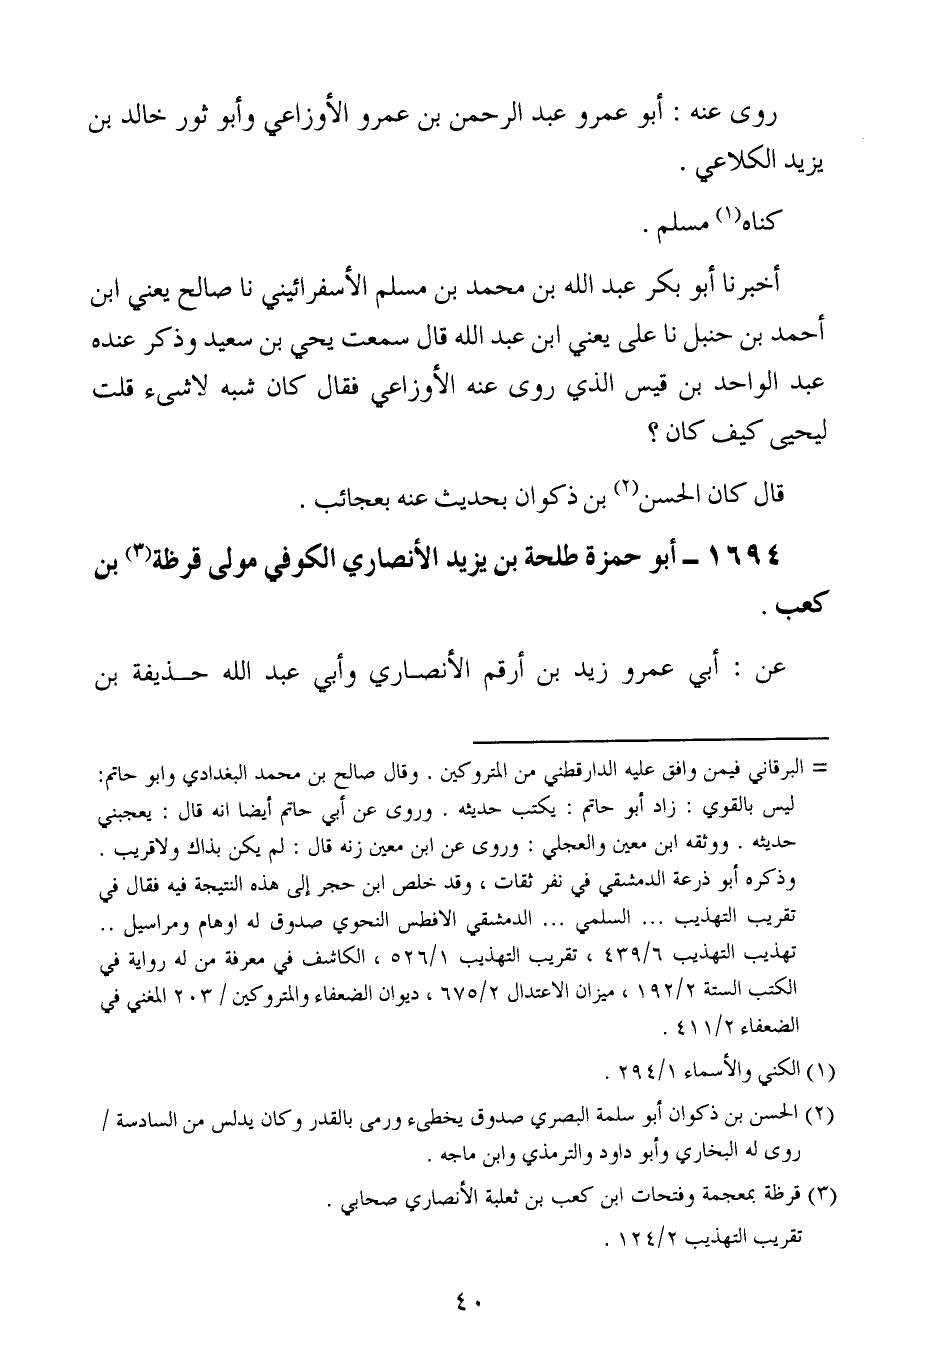 روى عنه : أبو عمرو عبد الرحمن بن عمرو الأوزاعي وأبو ثور خالد بن
يزيد الكلاعي .
كناه(١) مسلم .
أخبرنا أبو بكر عبد الله بن محمد بن مسلم الأسفرائيني نا صالح يعني ابن
أحمد بن حنبل نا على يعني ابن عبد الله قال سمعت يحي بن سعيد وذكر عنده
عبد الواحد بن قيس الذي روى عنه الأوزاعي فقال كان شبه لاشىء قلت
ليحيى كيف كان ؟
قال كان الحسن(٢) بن ذكوان بحديث عنه بعجائب .
١٦٩٤ ـ أبو حمزة طلحة بن يزيد الأنصاري الكوفي مولى قرظة(٣) بن
كعب .
عن : أبي عمرو زيد بن أرقم الأنصاري وأبي عبد الله حذيفة بن
= البرقاني فيمن وافق عليه الدارقطني من المتروكين . وقال صالح بن محمد البغدادي وابو حاتم:
ليس بالقوي : زاد أبو حاتم : يكتب حديثه . وروى عن أبي حاتم أيضا انه قال : يعجبني
حديثه . ووثقه ابن معين والعجلي : وروى عن ابن معين زنه قال : لم يكن بذاك ولاقريب .
وذكره أبو ذرعة الدمشقي في نفر ثقات ، وقد خلص ابن حجر إلى هذه النتيجة فيه فقال في
تقريب التهذيب ... السلمي ... الدمشقي الافطس النحوي صدوق له اوهام ومراسيل ..
تهذيب التهذيب ٤٣٩/٦ ، تقريب التهذيب ٥٢٦/١ ، الكاشف في معرفة من له رواية في
الكتب الستة ١٩٢/٢ ، ميزان الاعتدال ٦٧٥/٢ ، ديوان الضعفاء والمتروكين / ٢٠٣ المغني في
الضعفاء ٤١١/٢ .
(١) الكني والأسماء ٢٩٤/١ .
(٢) الحسن بن ذكوان أبو سلمة البصري صدوق يخطىء ورمى بالقدر وكان يدلس من السادسة /
روى له البخاري وأبو داود والترمذي وابن ماجه .
(٣) قرظة بمعجمة وفتحات ابن كعب بن ثعلبة الأنصاري صحابي .
تقريب التهذيب ١٢٤/٢ .
٤٠